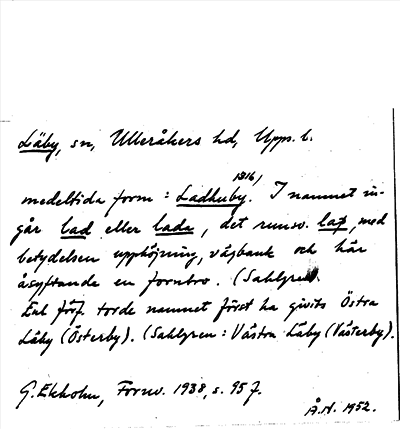 Läby, sn, Ulleråkers hd, Upps. l.
1316/
medeltida form : Ladhuby. I namnet in-
går lad eller lada, det runsv. laþ, med
betydelsen upphöjning, vägbank och här
åsyftande en fornbro. (Sahlgren).
Enl. förf. torde namnet först ha givits Östra
Läby (Österby). (Sahlgren : Västra Läby (Västerby).
G. Ekholm, Fornv. 1938, s. 95 f.
Å.N. 1952.